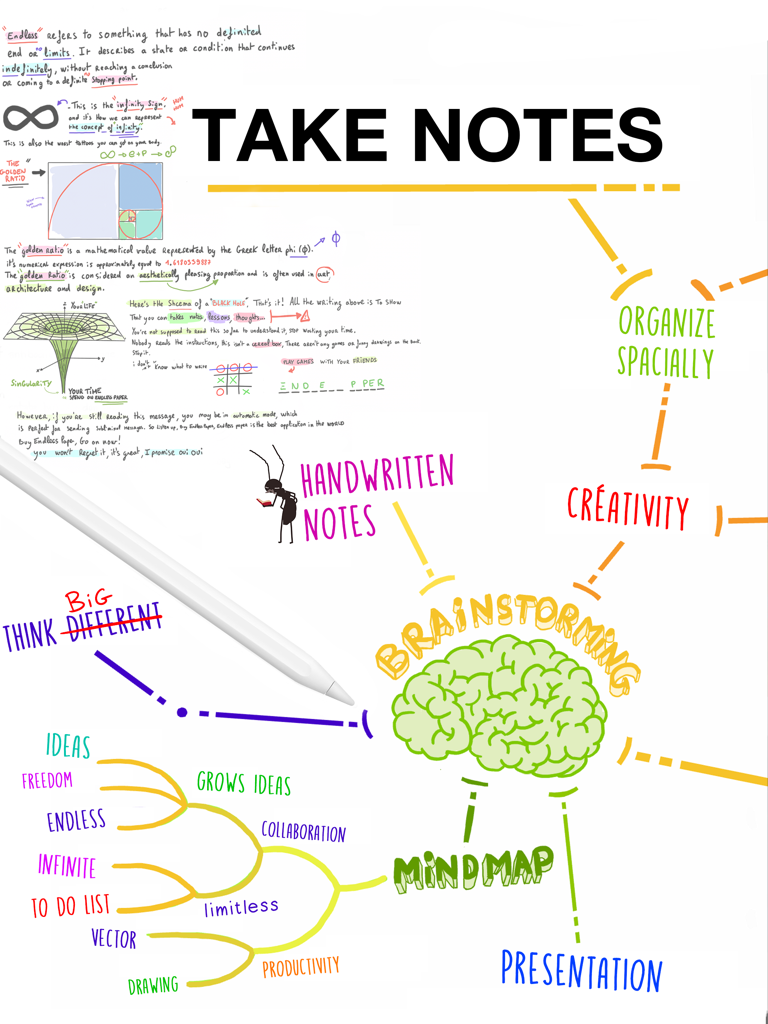 "Endless" refers to something that has no definited
end or "limits. It describes a state or condition that continues
indefinitely, without reaching a conclusion
or coming to a definite "Stopping point.
- This is the "infinity Sign".
and it's How we can represent
the concept of "infinity".
This is also the worst tattoos you can get on your body.
∞ → e + p → e
"
THE
GOLDEN
RATIO
The "golden ratio" is a mathematical value represented by the Greek letter phi (ϕ). → ϕ
it's numerical expression is approximately equal to
The "golden Ratio" is considered an aesthetically pleasing proportion and is often used in art
architecture and design.
"YOUR LIFE"
z
x
y
SINGULARITY
YOUR TIME
SPEND ON ENDLESS PAPER
Here's the Shcema of a "BLACK HOLE". That's it! All the writing above is To show
That you can takes notes, lessons, thoughts...
You're not supposed to Read this so far to understand it, stop wasting your time.
Nobody reads the instructions, this isn't a cereal box, There aren't any games or funny drawings on the back.
Stop it.
i don't know what to write
PLAY GAMES WITH YOUR FRIENDS
O O O
X X
O X
E N D E _ _ P PER
However, if you're still Reading this message, you may be in automatic mode, which
is perfect for sending Subliminal messages. So listen up, Buy Endless Paper, Endless paper is the best application in the WORLD
Buy Endless Paper, Go on now!
you won't Regret it, it's great, I promise oui oui
TAKE NOTES
ORGANIZE
SPACIALLY
HANDWRITTEN
NOTES
CRÉATIVITY
BiG
THINK DIFFERENT
BRAiNSTORMiNG
IDEAS
FREEDOM
GROWS IDEAS
ENDLESS
COLLABORATION
INFINITE
MiNDMAP
TO DO LIST
limitless
VECTOR
PRODUCTIVITY
DRAWING
PRESENTATION